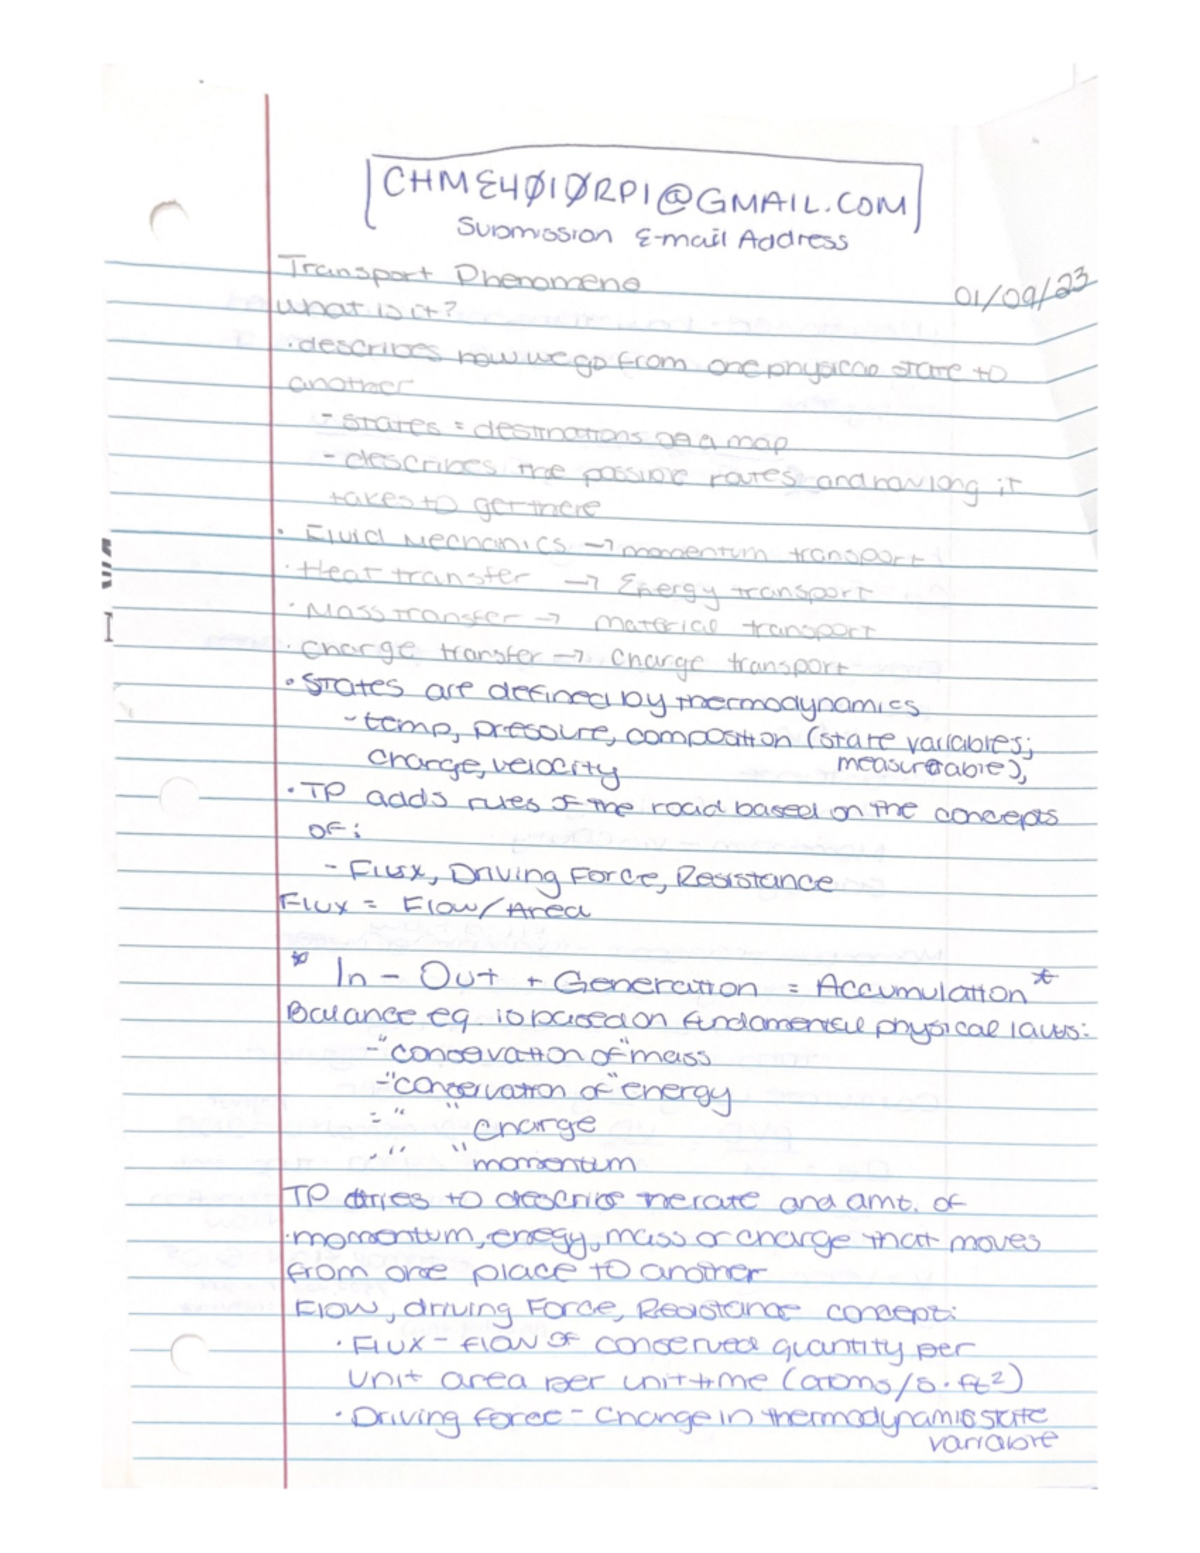 CHME4010RPI@GMAIL.COM
Submission E-mail Address
Transport Phenomena
01/09/23
what is it?
· describes how we go from one physical state to
another
- States = destinations on a map
- describes the possible routes and how long it
takes to get there
· Fluid Mechanics → momentum transport
· Heat transfer → Energy transport
· Mass transfer → material transport
· Charge transfer → Charge transport
• States are defined by thermodynamics
- temp, pressure, composition (state variables;
measureable),
charge, velocity
· TP adds rules of the road based on the concepts
of:
- Flux, Driving Force, Resistance
Flux = Flow/Area
* In - Out + Generation = Accumulation *
Balance eq. is based on fundamental physical laws:
- "conservation of" mass
- "conservation of" energy
- " " charge
- " " momentum
TP tries to describe the rate and amt. of
momentum, energy, mass or charge that moves
from one place to another
Flow, driving Force, Resistance concept:
· Flux - flow of conserved quantity per
unit area per unit time (atoms/s·ft²)
· Driving force - Change in thermodynamic state
variable